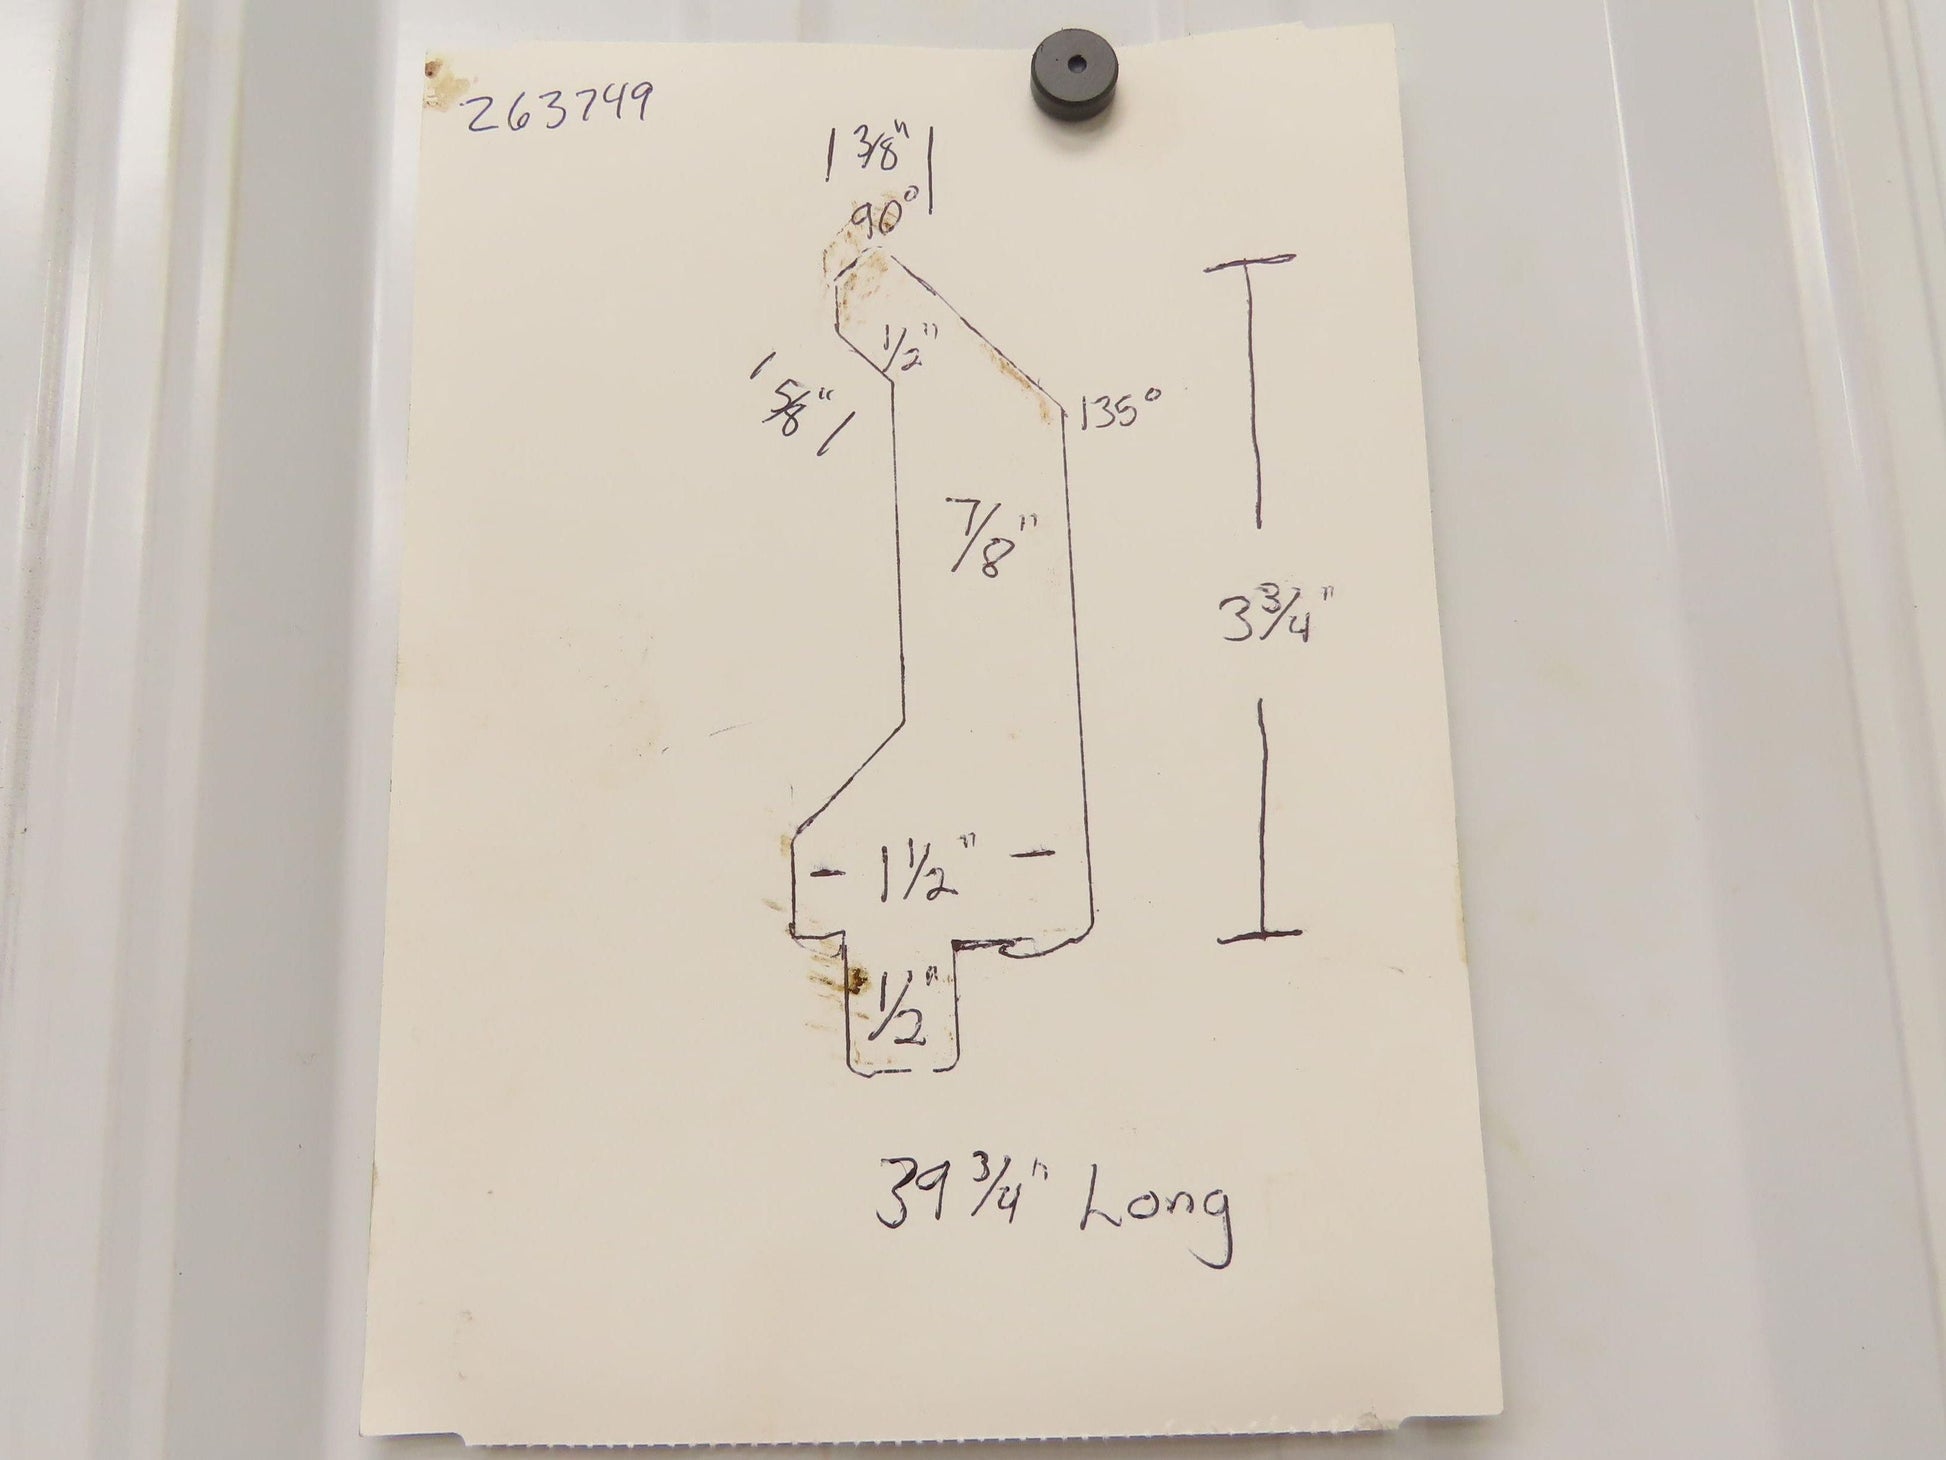 263749
3/8"
90°
1/2"
5/8"
135°
7/8"
3 3/4"
1 1/2"
1/2"
39 3/4" Long